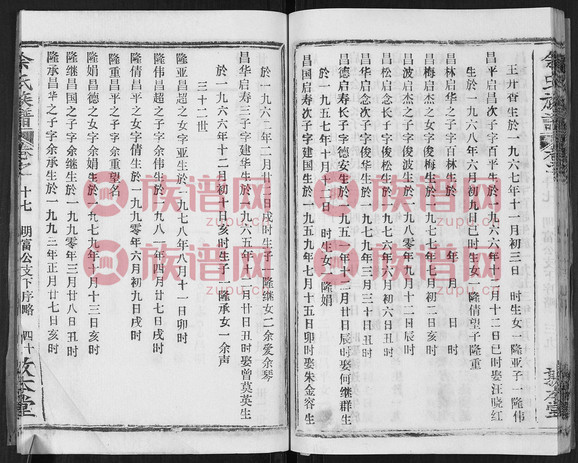 王开香生於一九六七年十一月初三日 时生女一隆亚子一隆伟
昌平启昌次子字百平生於一九六六年十一月十二日巳时娶汪晓红
生於一九六八年六月初九日巳时生女一隆倩望子隆重
昌林启华之子字百林生於 年 月 日 时
昌梅启杰之女字俊梅生於一九七七年六月初二日辰时
昌波启杰之子字俊波生於一九 年 月十二日辰时
昌松启念长子字俊松生於一九 年 月初六日丑时
昌华启念次子字俊华生於一九七九年三月三十日丑时
昌德启寿长子字德安生於一九五 年十二月廿日辰时娶何继群生
於一九五七年十月十 日 时生女一隆娟
昌国启寿次子字建国生於一九五九年七月十五日 时娶朱金容生
於一九六二年二月廿 日戌时生子一隆继女二余爱余琴
昌华启寿三子字建华生於一九六五年十一月 日丑时娶曾莫英生
於一九六六年十二月初十日亥时生子一隆承女一余声
三十二世
隆亚昌超之女字亚生於一九八八年 月二十一日卯时
隆伟昌超之子字余伟生於一九 年四月廿七日戌时
隆倩昌平之女字余倩生於一九九〇年六月初九日戌时
隆重昌平之子字余重望名
隆娟昌德之女字余娟生於一九七九年 月十三日亥时
隆继昌国之子字余继生於一九九〇年三月廿八日丑时
隆承昌华之子字余承生於一九九三年正月廿七日亥时
余氏族谱 卷之 十七 明富公支下序略 四十 敦本堂
族谱网
zupu.cn